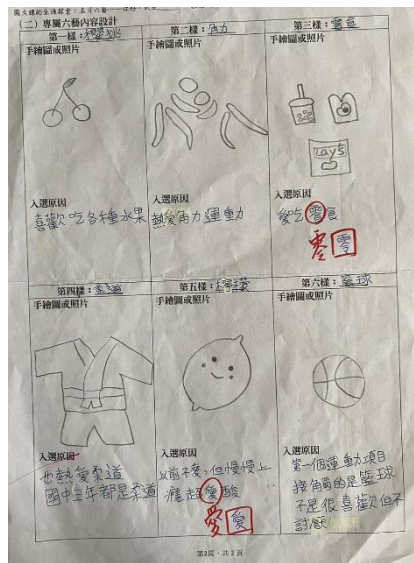 (二) 專屬六藝內容設計
第一樣：櫻桃
第二樣：角力
第三樣：零食
手繪圖或照片
手繪圖或照片
手繪圖或照片
Lay's
入選原因
入選原因
入選原因
喜歡吃各種水果
熱愛角力運動
愛吃零食
零 零
第四樣：柔道
第五樣：檸檬
第六樣：籃球
手繪圖或照片
手繪圖或照片
手繪圖或照片
入選原因
入選原因
入選原因
也熱愛柔道
國中三年都是柔道
以前不愛，但慢慢上
癮超愛酸
愛 愛
第一個運動項目
接觸的是籃球
不是很喜歡但不
討厭
第2頁，共2頁